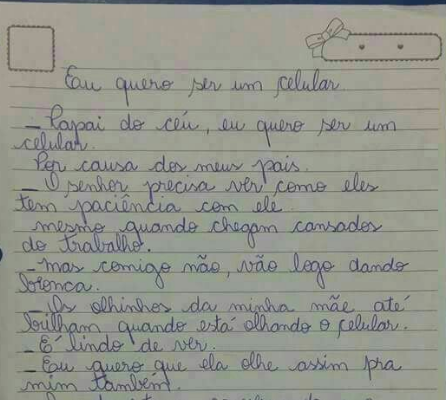 Eu quero ser um celular
– Papai do céu, eu quero ser um
celular.
Por causa dos meus pais.
– O senhor precisa ver como eles
tem paciência com ele.
mesmo quando chegam cansados
do trabalho.
– mas comigo não, vão logo dando
bronca.
– Os olhinhos da minha mãe até
brilham quando está olhando o celular.
– É lindo de ver.
– Eu quero que ela olhe assim pra
mim também.